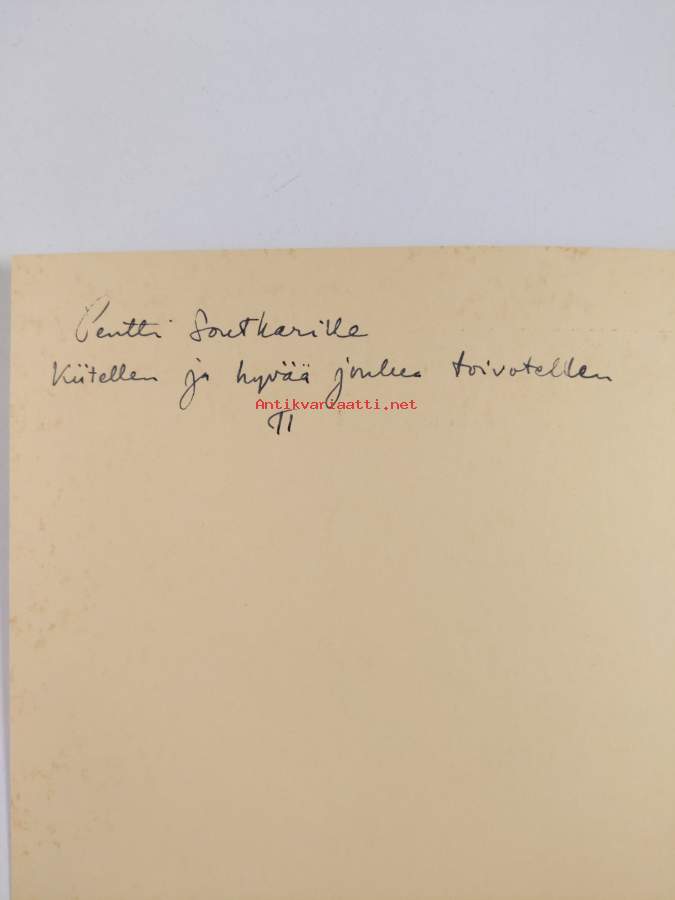 Pentti Soutkarille
Kiitellen ja hyvää joulua toivotellen
Antikvariaatti.net
TI